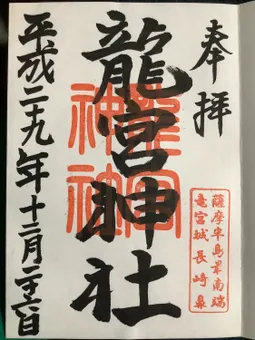 奉拝
薩摩半島最南端
竜宮城長崎鼻
龍宮神社
龍宮神社
平成二十九年十二月二十六日